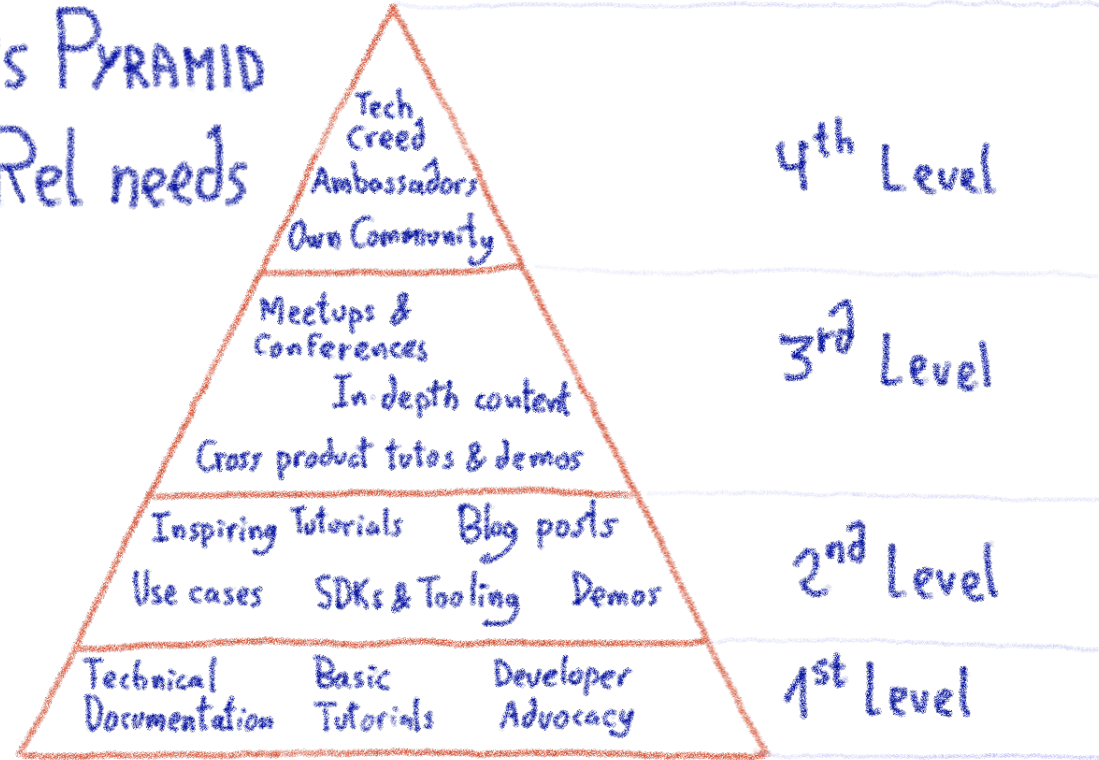 's PYRAMID
Rel needs
Tech
Creed
Ambassadors
Own Community
4th Level
Meetups &
Conferences
In depth content
Cross product tutos & demos
3rd Level
Inspiring Tutorials Blog posts
Use cases SDKs & Tooling Demos
2nd Level
Technical Basic Developer
Documentation Tutorials Advocacy
1st Level